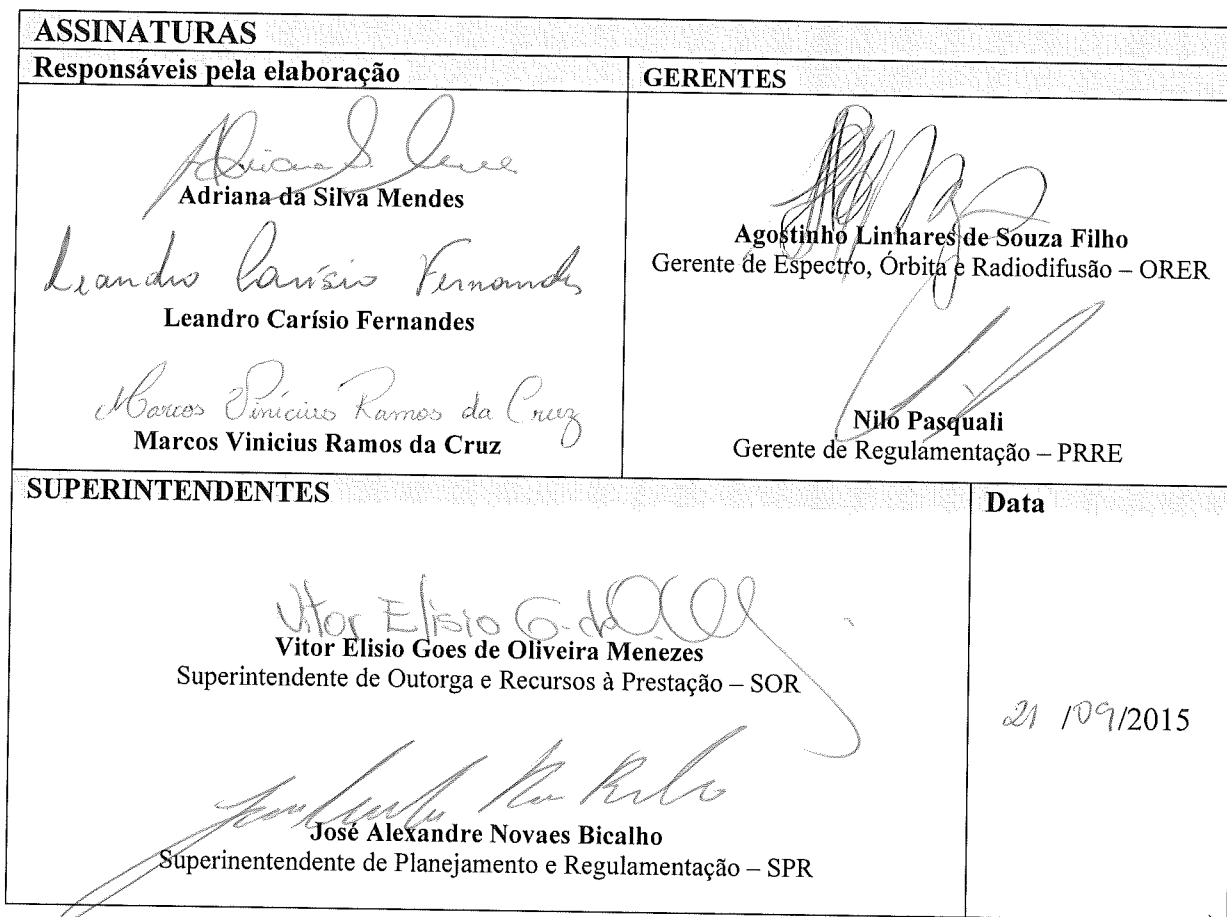 ASSINATURAS
Responsáveis pela elaboração
Adriana S.
Adriana da Silva Mendes
Leandro Carísio Fernandes
Leandro Carísio Fernandes
Marcos Vinicius Ramos da Cruz
Marcos Vinicius Ramos da Cruz
GERENTES
Agostinho Linhares de Souza Filho
Gerente de Espectro, Órbita e Radiodifusão – ORER
Nilo Pasquali
Gerente de Regulamentação – PRRE
SUPERINTENDENTES
Vitor Elisio G. de
Vitor Elisio Goes de Oliveira Menezes
Superintendente de Outorga e Recursos à Prestação – SOR
José Alexandre Novaes Bicalho
Superinentendente de Planejamento e Regulamentação – SPR
Data
21 /09/2015